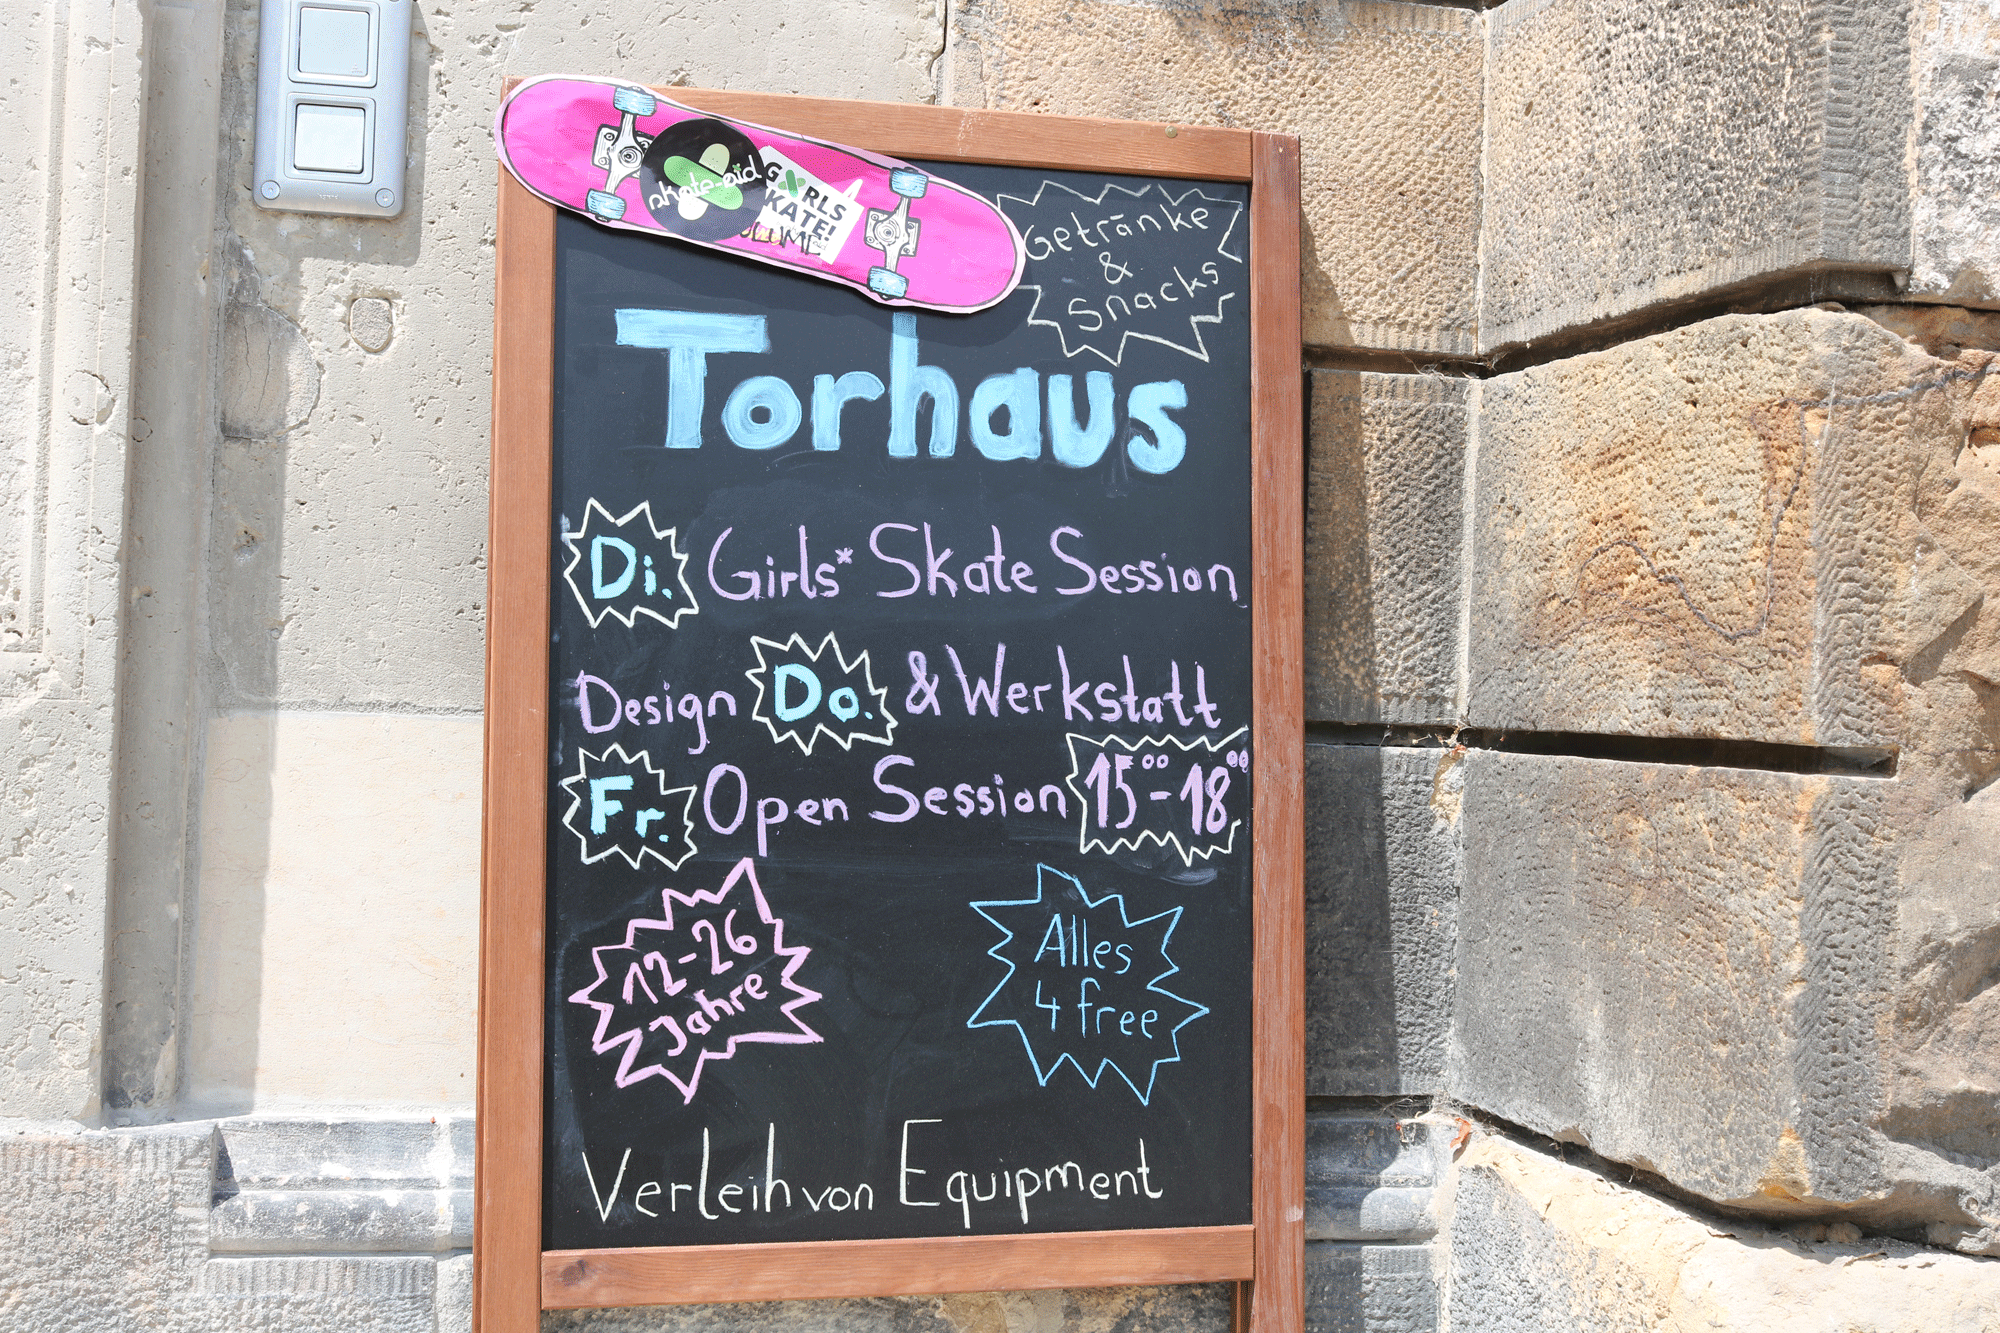 skate-aid
GIRLS
SKATE!
Getränke
&
Snacks
Torhaus
Di. Girls* Skate Session
Design Do. & Werkstatt
Fr. Open Session 15⁰⁰-18⁰⁰
12-26
Jahre
Alles
4 free
Verleih von Equipment